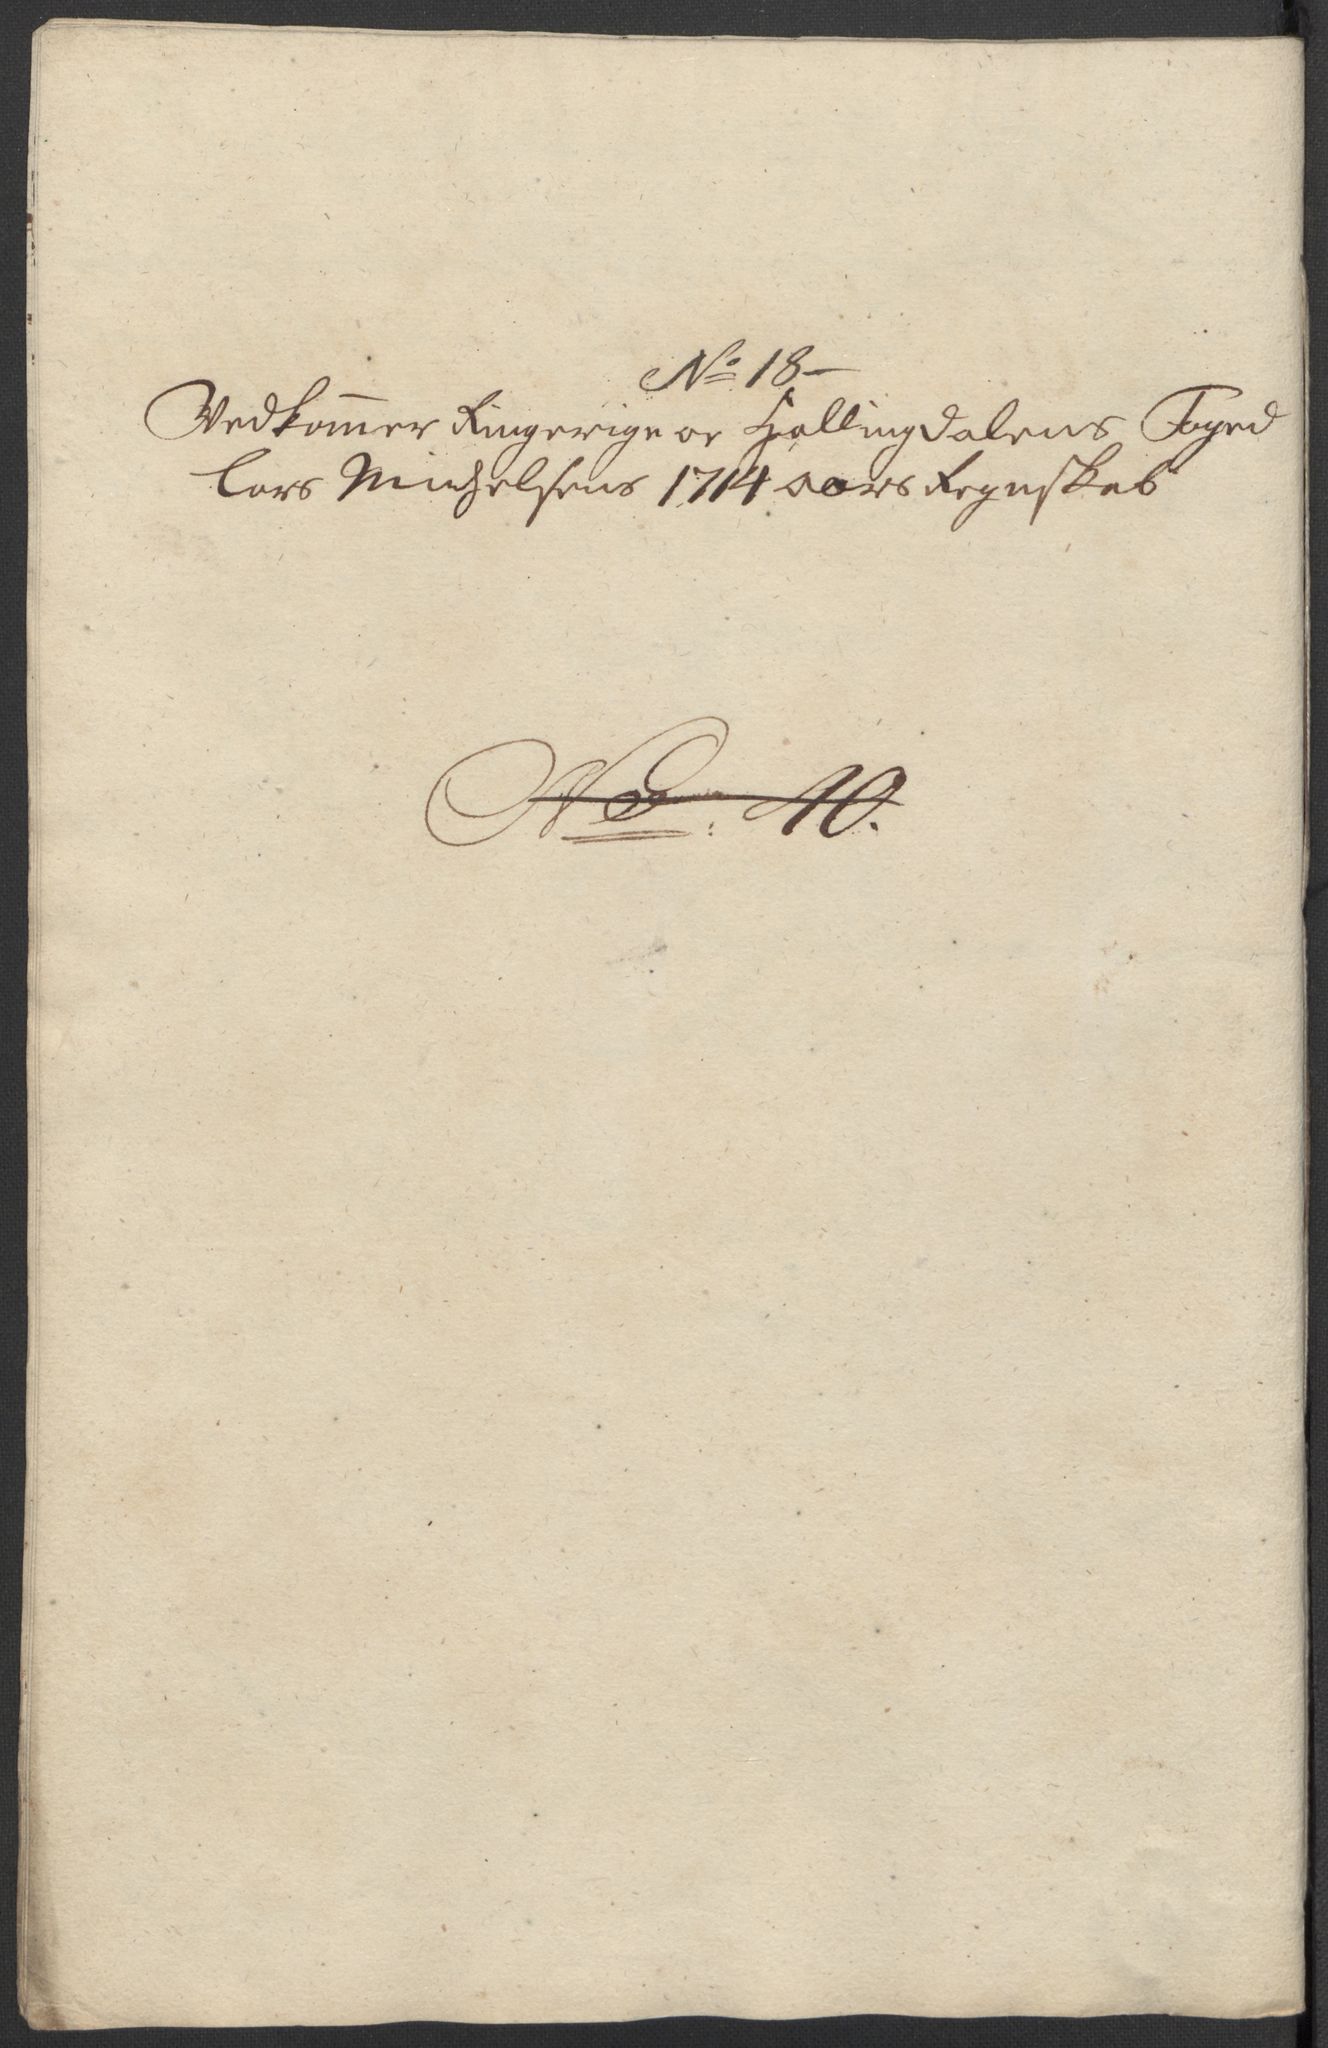 No 18 -
Vedkom̄er Ringerige oc Hallingdalens Foged
Lars Michelsens 1714 aars Regnskab
No: 40.